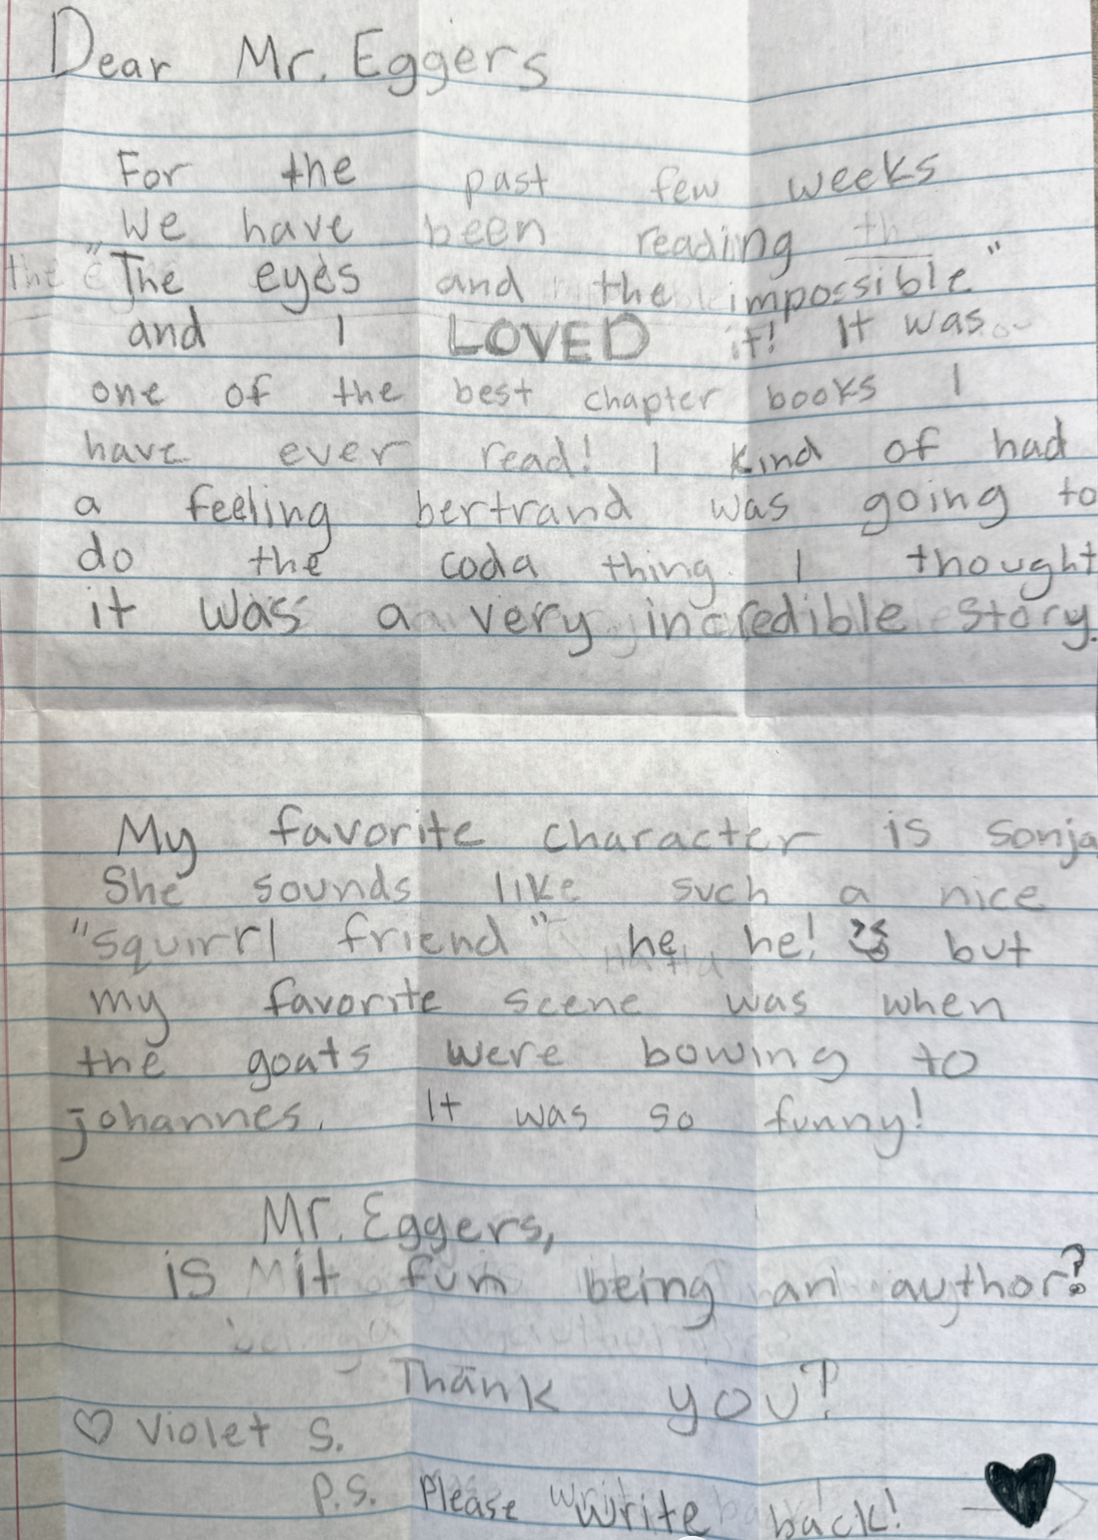 Dear Mr. Eggers
For the past few weeks
We have been reading
"The eyes and the impossible"
and I LOVED it! It was
one of the best chapter books I
have ever read! I kind of had
a feeling bertrand was going to
do the coda thing. I thought
it was a very incredible story.
My favorite character is sonja
She sounds like such a nice
"squirrl friend" he he! but
my favorite scene was when
the goats were bowing to
johannes. It was so funny!
Mr. Eggers,
is it fun being an author?
Thank you!
♡ Violet S.
P.S. Please write back!